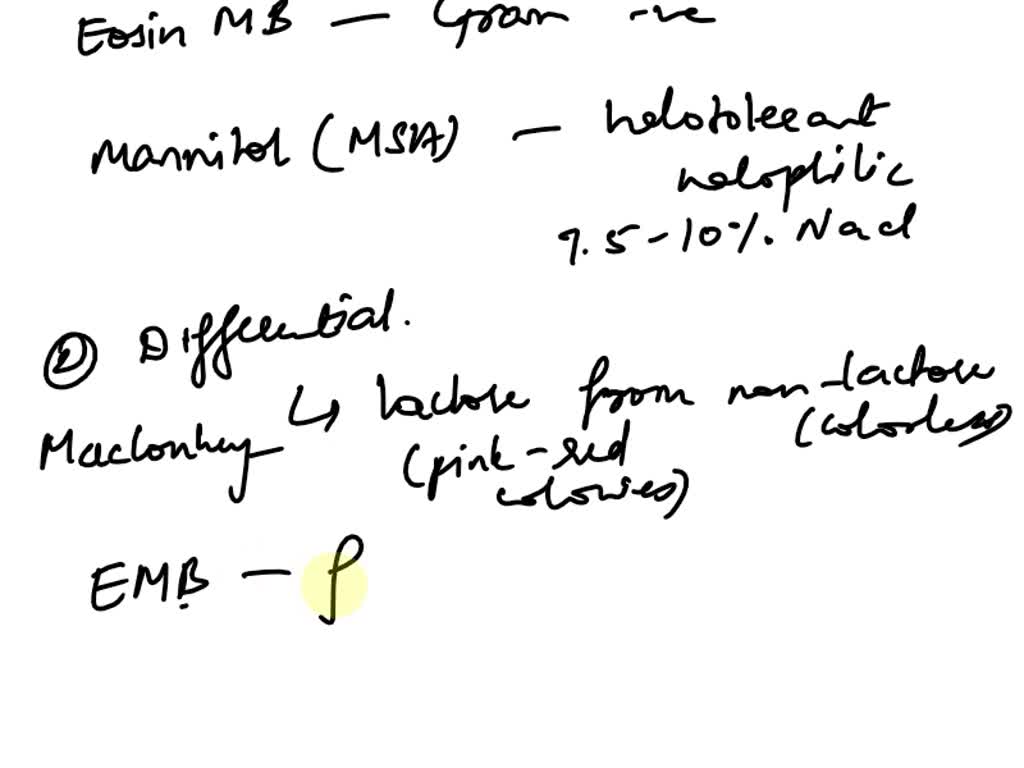 Eosin MB — Gram -ve
Mannitol (MSA) — halotolerant
halophilic
7.5-10%. Nacl
② Differential.
Macconkey ↳ lactose from non-lactose
(pink-red colonies) (colorless)
EMB — f